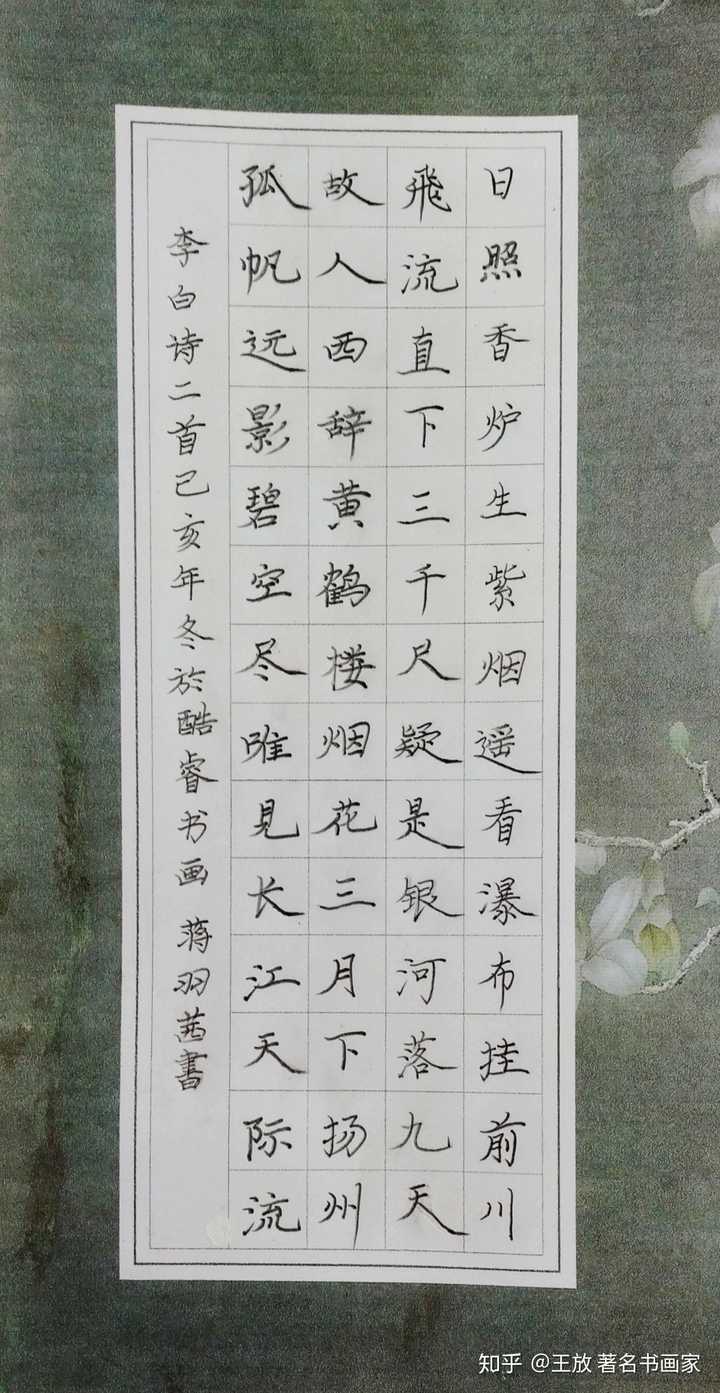 日照香炉生紫烟遥看瀑布挂前川
飛流直下三千尺疑是银河落九天
故人西辞黄鹤楼烟花三月下扬州
孤帆远影碧空尽唯見长江天际流
李白诗二首己亥年冬於酷睿书画 蒋羽茜書
知乎 @王放 著名书画家